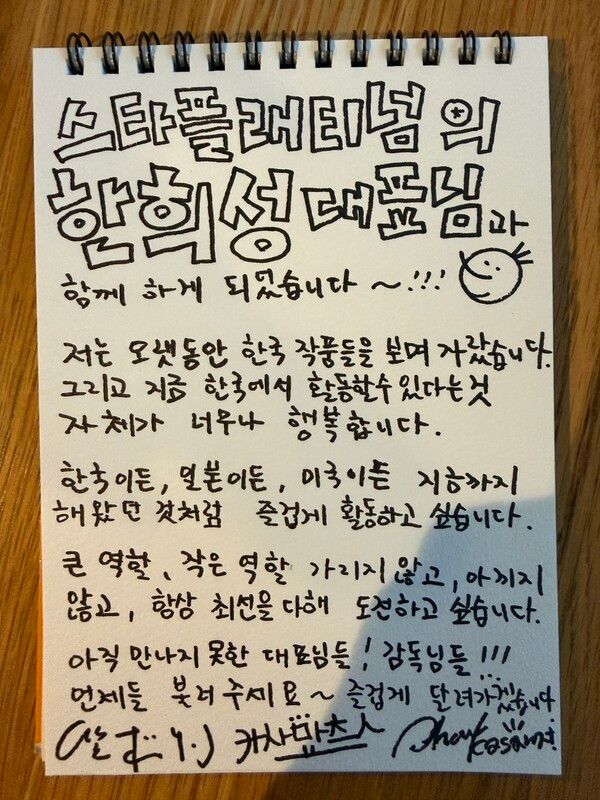 스타플래티넘의
한희성 대표님과
함께 하게 되었습니다 ~!!!
저는 오랫동안 한국 작품들을 보며 자랐습니다.
그리고 지금 한국에서 활동할수 있다는것
자체가 너무나 행복합니다.
한국이든, 일본이든, 미국이든 지금까지
해왔던 것처럼 즐겁게 활동하고 싶습니다.
큰 역할, 작은 역할 가리지 않고, 아끼지
않고, 항상 최선을 다해 도전하고 싶습니다.
아직 만나지 못한 대표님들! 감독님들!!!
언제든 불러 주세요~ 즐겁게 달려가겠습니다
카사마츠